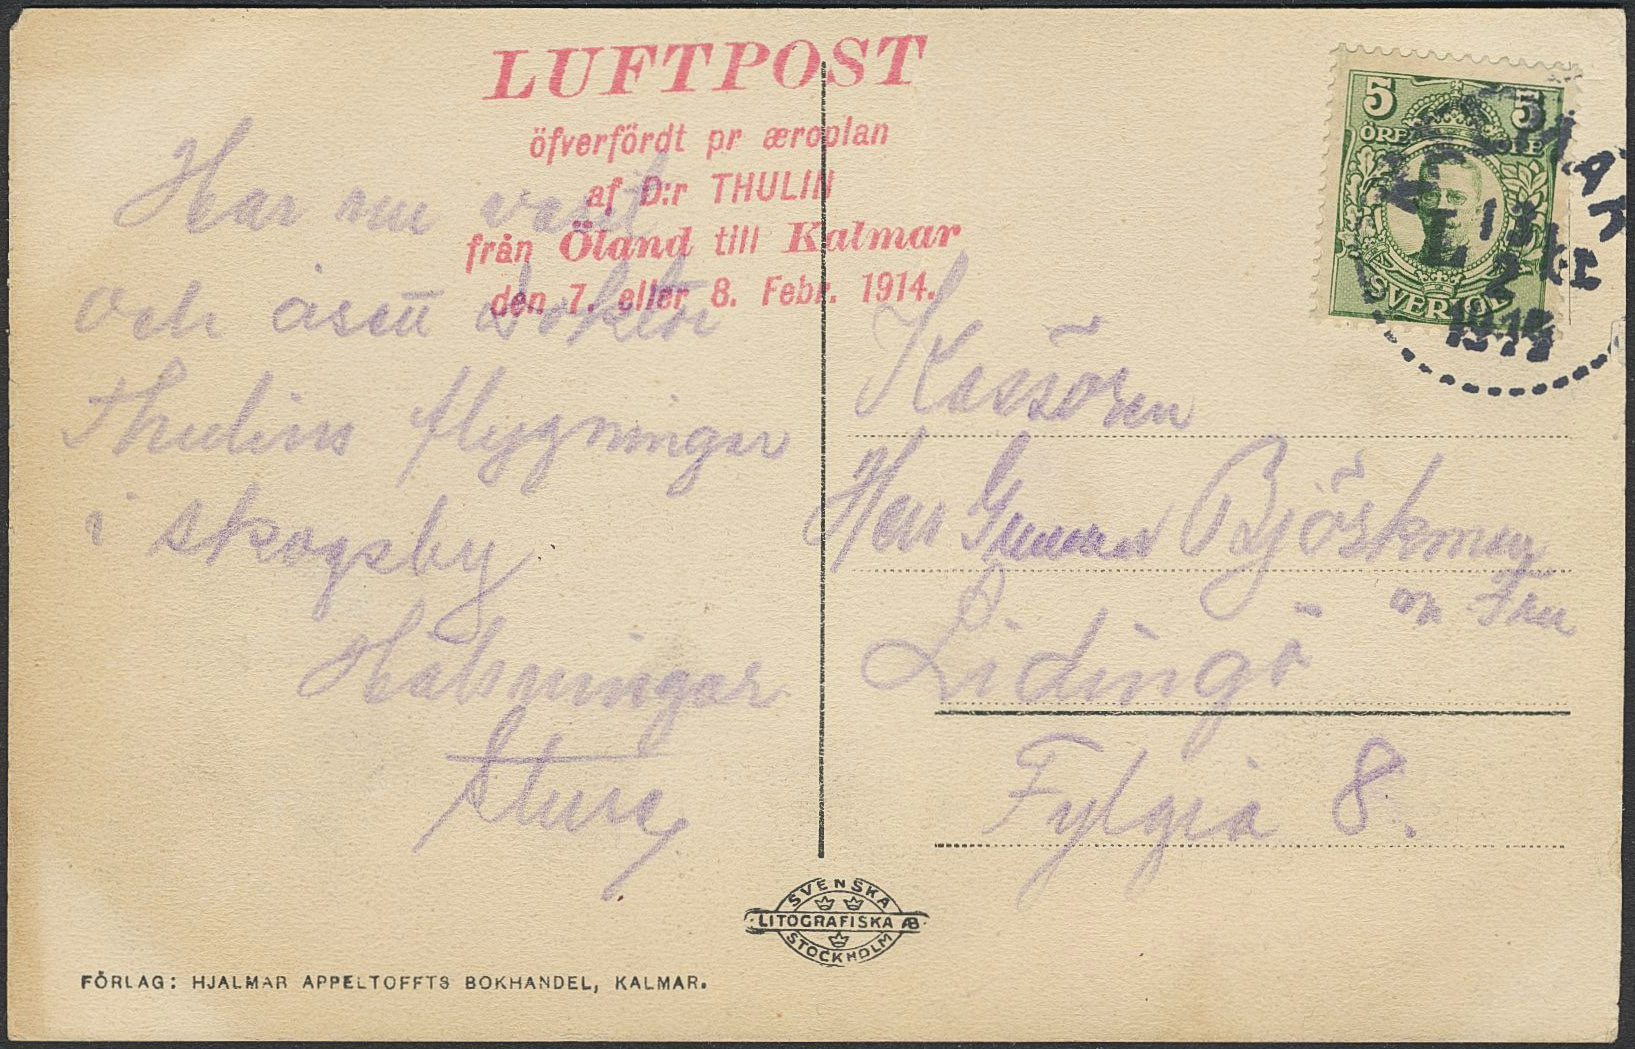 LUFTPOST
öfverfördt pr æroplan
af D:r THULIN
från Öland till Kalmar
den 7. eller 8. Febr. 1914.
Har nu varit
och åsett Doktor
Thulins flygningar
i Skogsby
Hälsningar
Sture
5 5
ÖRE ÖRE
SVERIGE
13
2
1914
Kassören
Herr Gunnar Björkman
o. Fru
Lidingö
Fylgia 8.
SVENSKA
LITOGRAFISKA AB
STOCKHOLM
FÖRLAG: HJALMAR APPELTOFFTS BOKHANDEL, KALMAR.